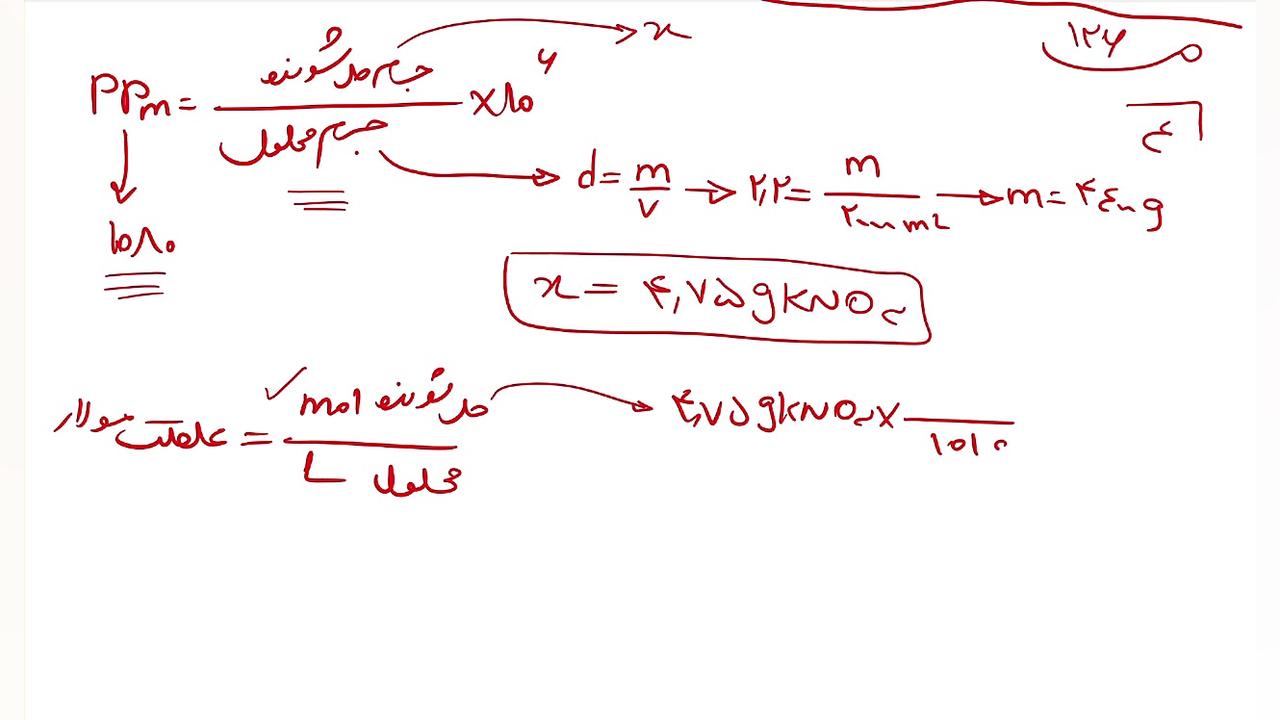 ۱۲۶
ppm = جرم حل شونده / جرم محلول × ۱۰^۶ → x
d = m/v → ۲,۲ = m / ۲۰۰۰ mL → m = ۴۴۰۰ g
x = ۴,۷۵ g KNO۳
غلظت مولار = mol حل شونده / L محلول → ۴,۷۵ g KNO۳ ×